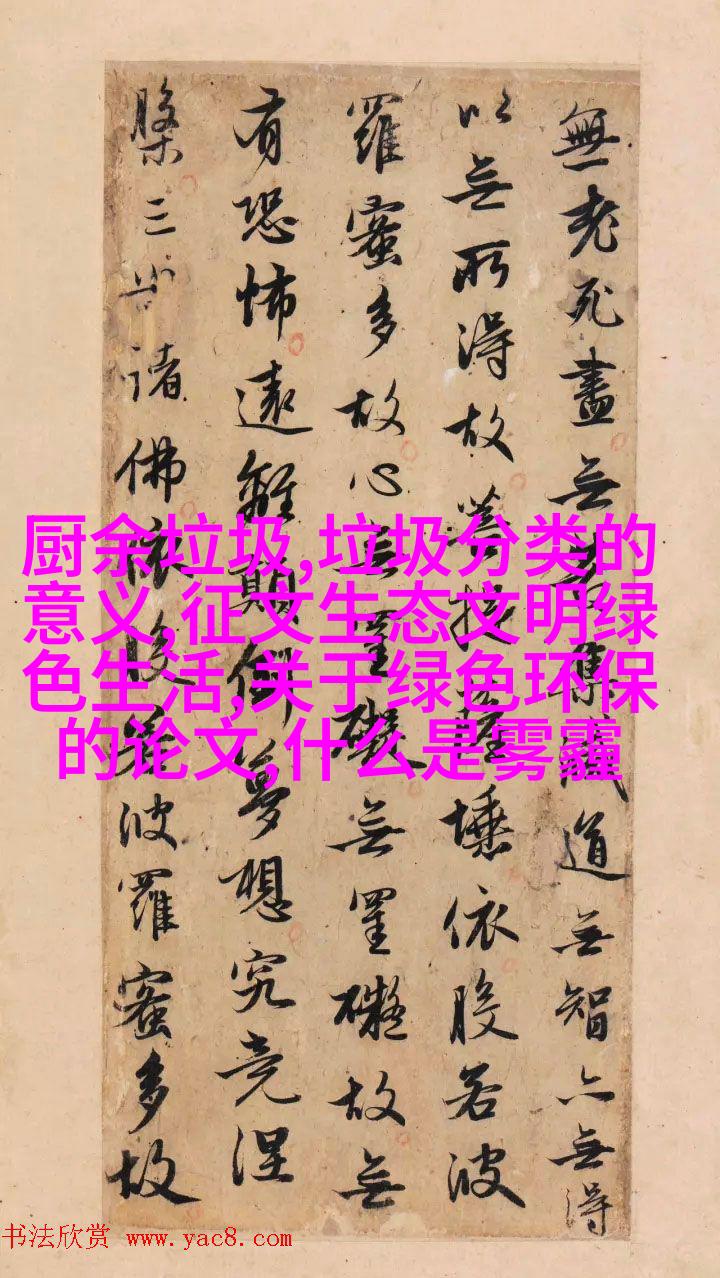 無老死盡無苦集滅道無智亦無得
以無所得故菩提薩埵依般若波
羅蜜多故心無罣礙無罣礙故無
有恐怖遠離顛倒夢想究竟涅
槃三世諸佛依般若波羅蜜多故
厨余垃圾,垃圾分类的
意义,征文生态文明绿
色生活,关于绿色环保
的论文,什么是雾霾
书法欣赏 www.yac8.com